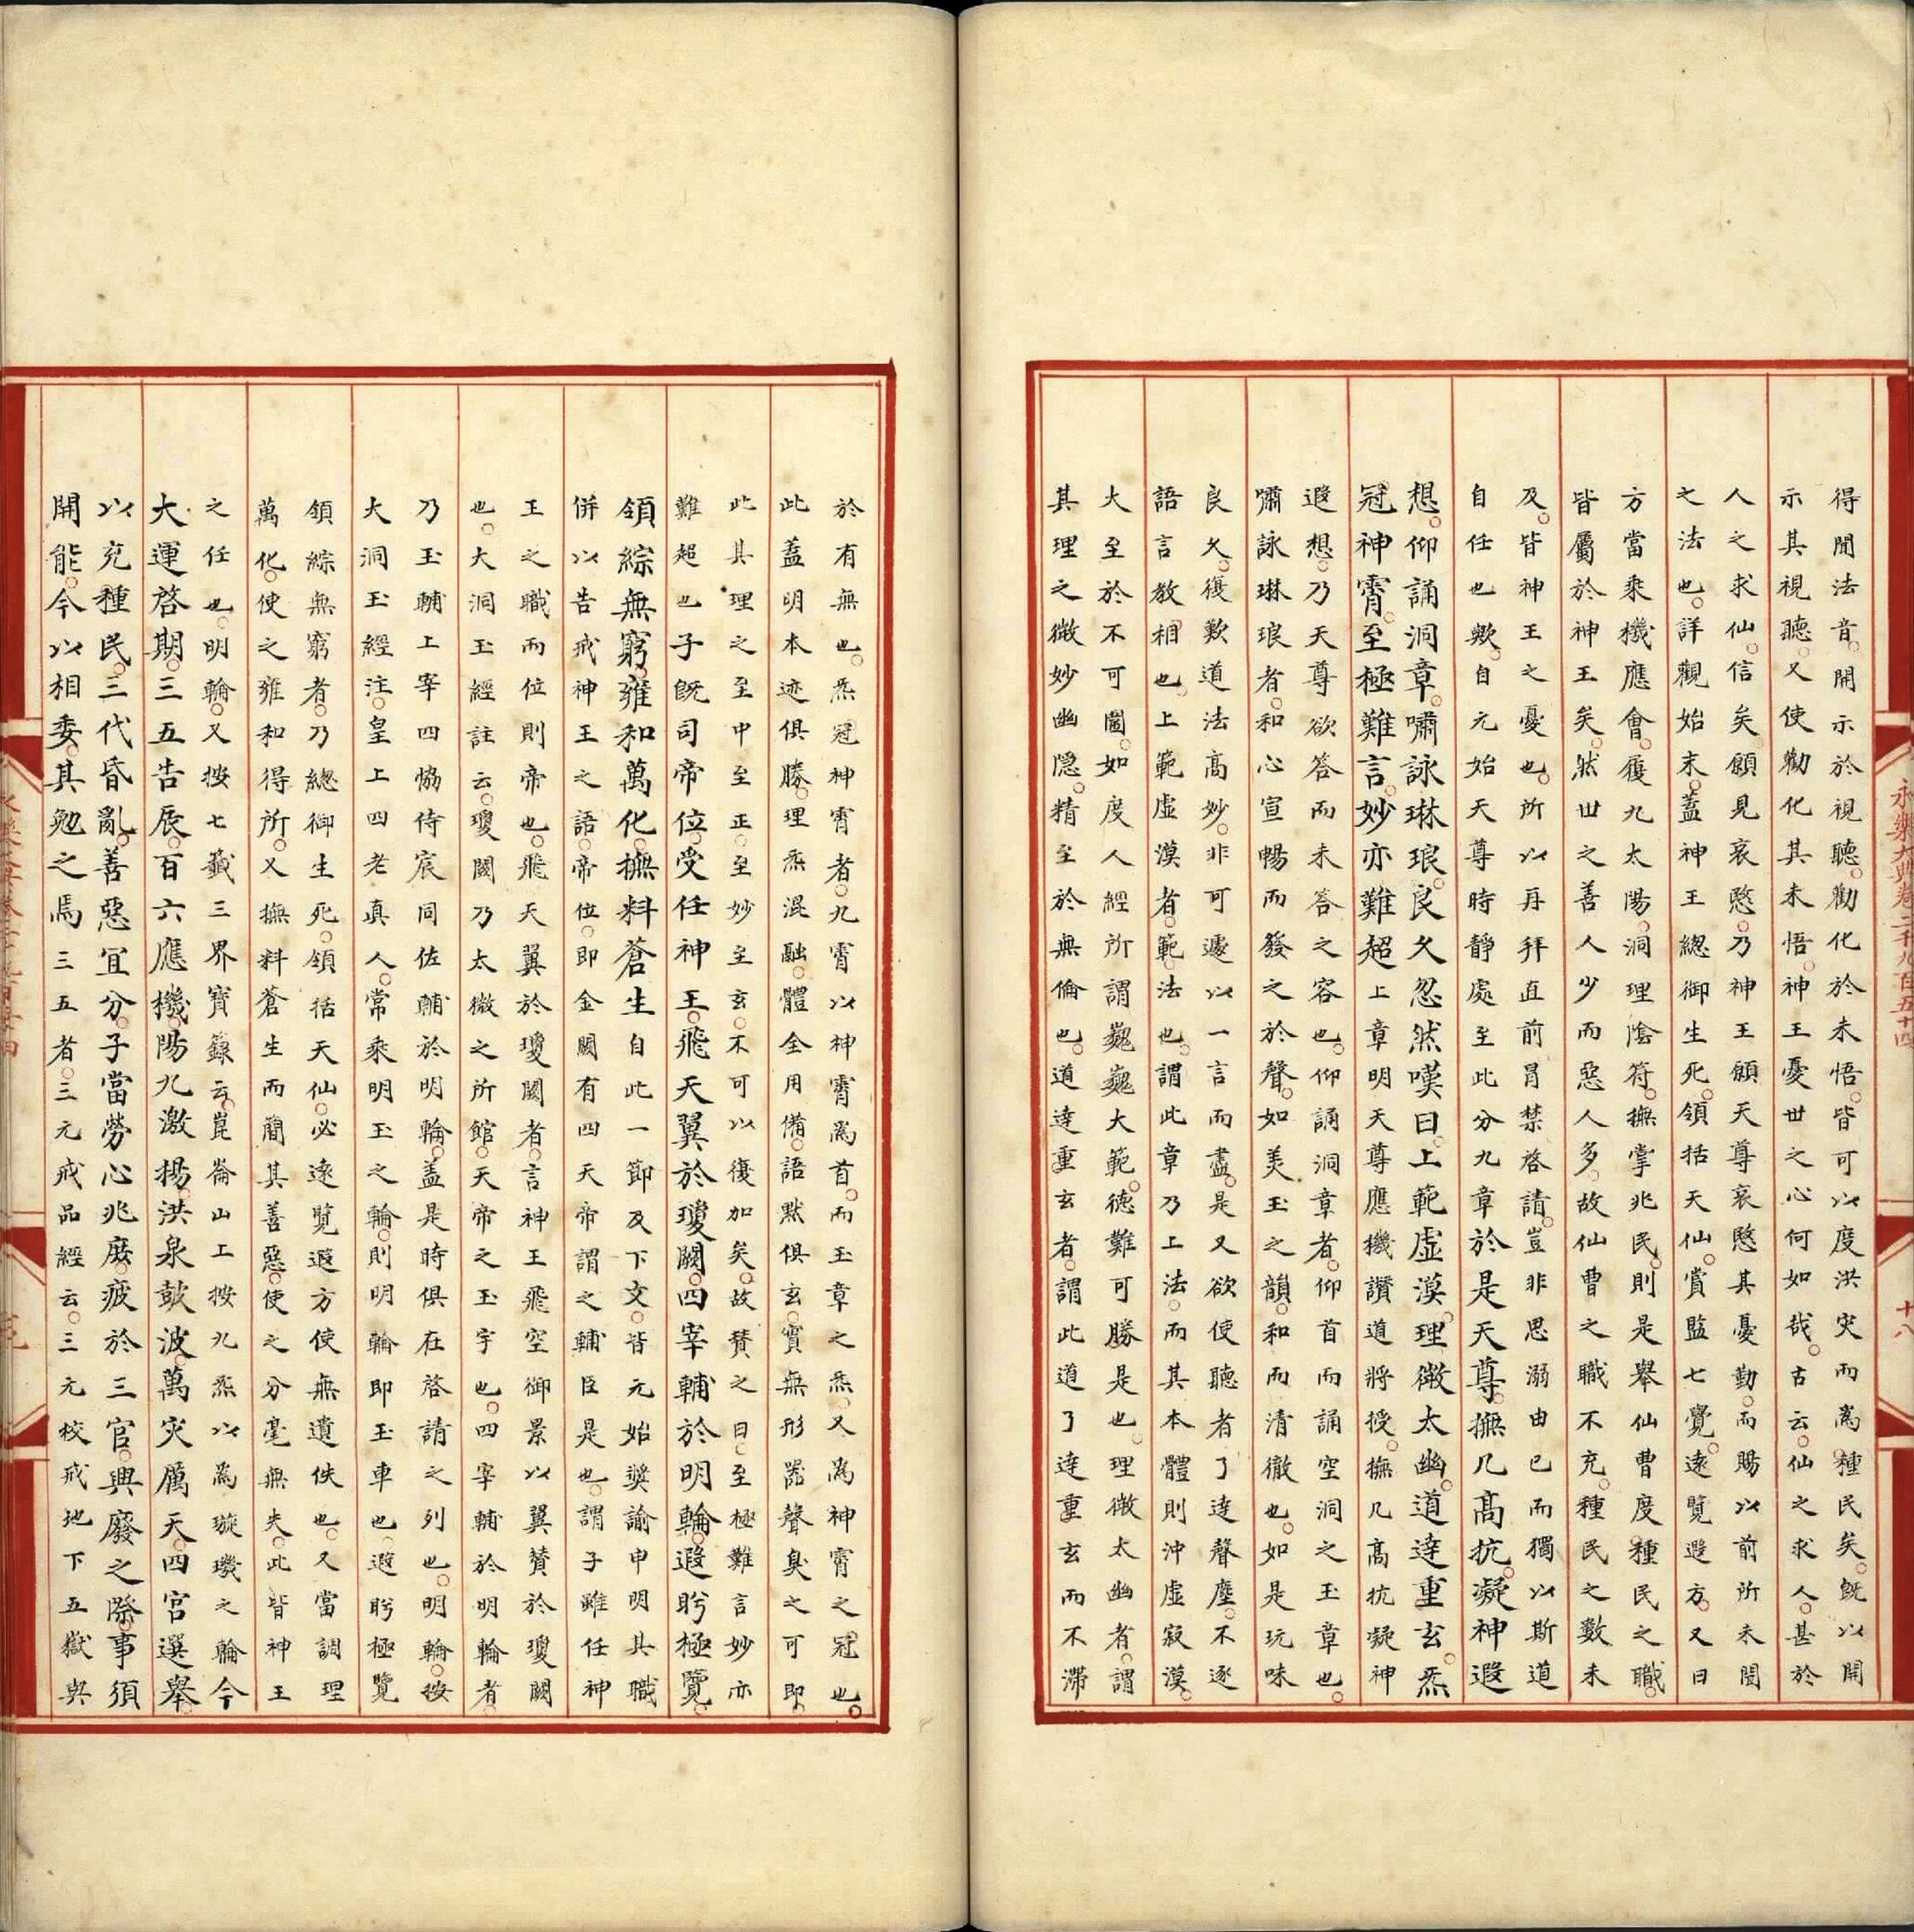 永樂大典卷二千九百五十四
十八
得聞法音。開示於視聽。勸化於未悟。皆可以度洪灾而為種民矣。既以開
示其視聽。又使勸化其未悟。神王憂世之心何如哉。古云。仙之求人。甚於
人之求仙。信矣願見哀愍。乃神王願天尊哀愍其憂勤。而賜以前所未聞
之法也。詳觀始末。蓋神王總御生死。領括天仙。賞監七覺。遠覽遐方。又曰
方當乘機應會。履九太陽。洞理陰符。撫掌兆民。則是舉仙曹度種民之職。
皆屬於神王矣。然世之善人少而惡人多。故仙曹之職不充。種民之數未
及。皆神王之憂也。所以再拜直前冒禁啓請。豈非思溺由已而獨以斯道
自任也歟。自元始天尊時靜處至此分九章於是天尊。撫几高抗。凝神遐
想。仰誦洞章。嘯詠琳琅。良久忽然嘆曰。上範虛漠。理微太幽。道達重玄。炁
冠神霄。至極難言。妙亦難超上章明天尊應機讚道將授。撫几高抗凝神
遐想。乃天尊欲答而未答之容也。仰誦洞章者。仰首而誦空洞之玉章也。
嘯詠琳琅者。和心宣暢而發之於聲。如美玉之韻。和而清徹也。如是玩味
良久。復歎道法高妙。非可遽以一言而盡。是又欲使聽者了達聲塵。不逐
語言教相也。上範虛漠者。範。法也。謂此章乃上法。而其本體則沖虛寂漠。
大至於不可圖。如度人經所謂巍巍大範。德難可勝是也。理微太幽者。謂
其理之微妙幽隱。精至於無倫也。道達重玄者。謂此道了達重玄而不滯
於有無也。炁冠神霄者。九霄以神霄為首。而玉章之炁。又為神霄之冠也。
此蓋明本迹俱勝。理炁混融。體全用備。語默俱玄。實無形嚣聲臭之可即。
此其理之至中至正。至妙至玄。不可以復加矣。故贊之曰。至極難言妙亦
難超也子既司帝位。受任神王。飛天翼於瓊闕。四宰輔於明輪。遐眄極覽。
領綜無窮。雍和萬化。撫料蒼生自此一節及下文。皆元始獎諭申明其職
併以告戒神王之語。帝位。即金闕有四天帝謂之輔臣是也。謂子雖任神
王之職而位則帝也。飛天翼於瓊闕者。言神王飛空御景以翼贊於瓊闕
也。大洞玉經註云。瓊闕乃太微之所館。天帝之玉宇也。四宰輔於明輪者。
乃玉輔上宰四協侍宸同佐輔於明輪。蓋是時俱在啓請之列也。明輪。按
大洞玉經注。皇上四老真人。常乘明玉之輪。則明輪即玉車也。遐眄極覽
領綜無窮者。乃總御生死。領括天仙。必遠覽遐方使無遺佚也。又當調理
萬化。使之雍和得所。又撫料蒼生而簡其善惡。使之分毫無失。此皆神王
之任也。明輪。又按七籤三界寶籙云。崑崙山上按九炁以為璇璣之輪今
大運啓期。三五告辰。百六應機。陽九激揚。洪泉鼓波。萬灾厲天。四官選舉。
以充種民。三代昏亂。善惡宜分。子當勞心兆庶。疲於三官。興廢之際。事須
開能。今以相委。其勉之焉三五者。三元戒品經云。三元校戒地下五嶽與